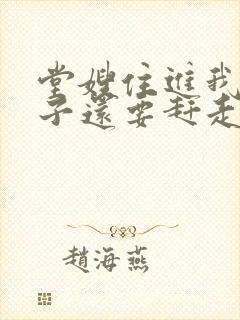 堂嫂住進我
子還要赶走
趙海燕